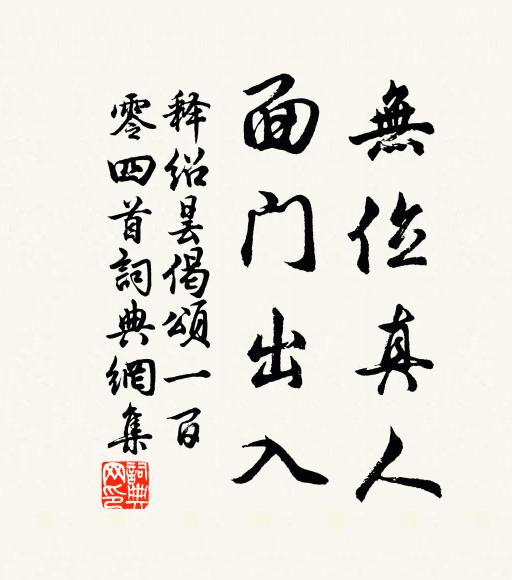 無位真人
面门出入
释绍昙偈頌一百
零四首詞典網集
詞典网印